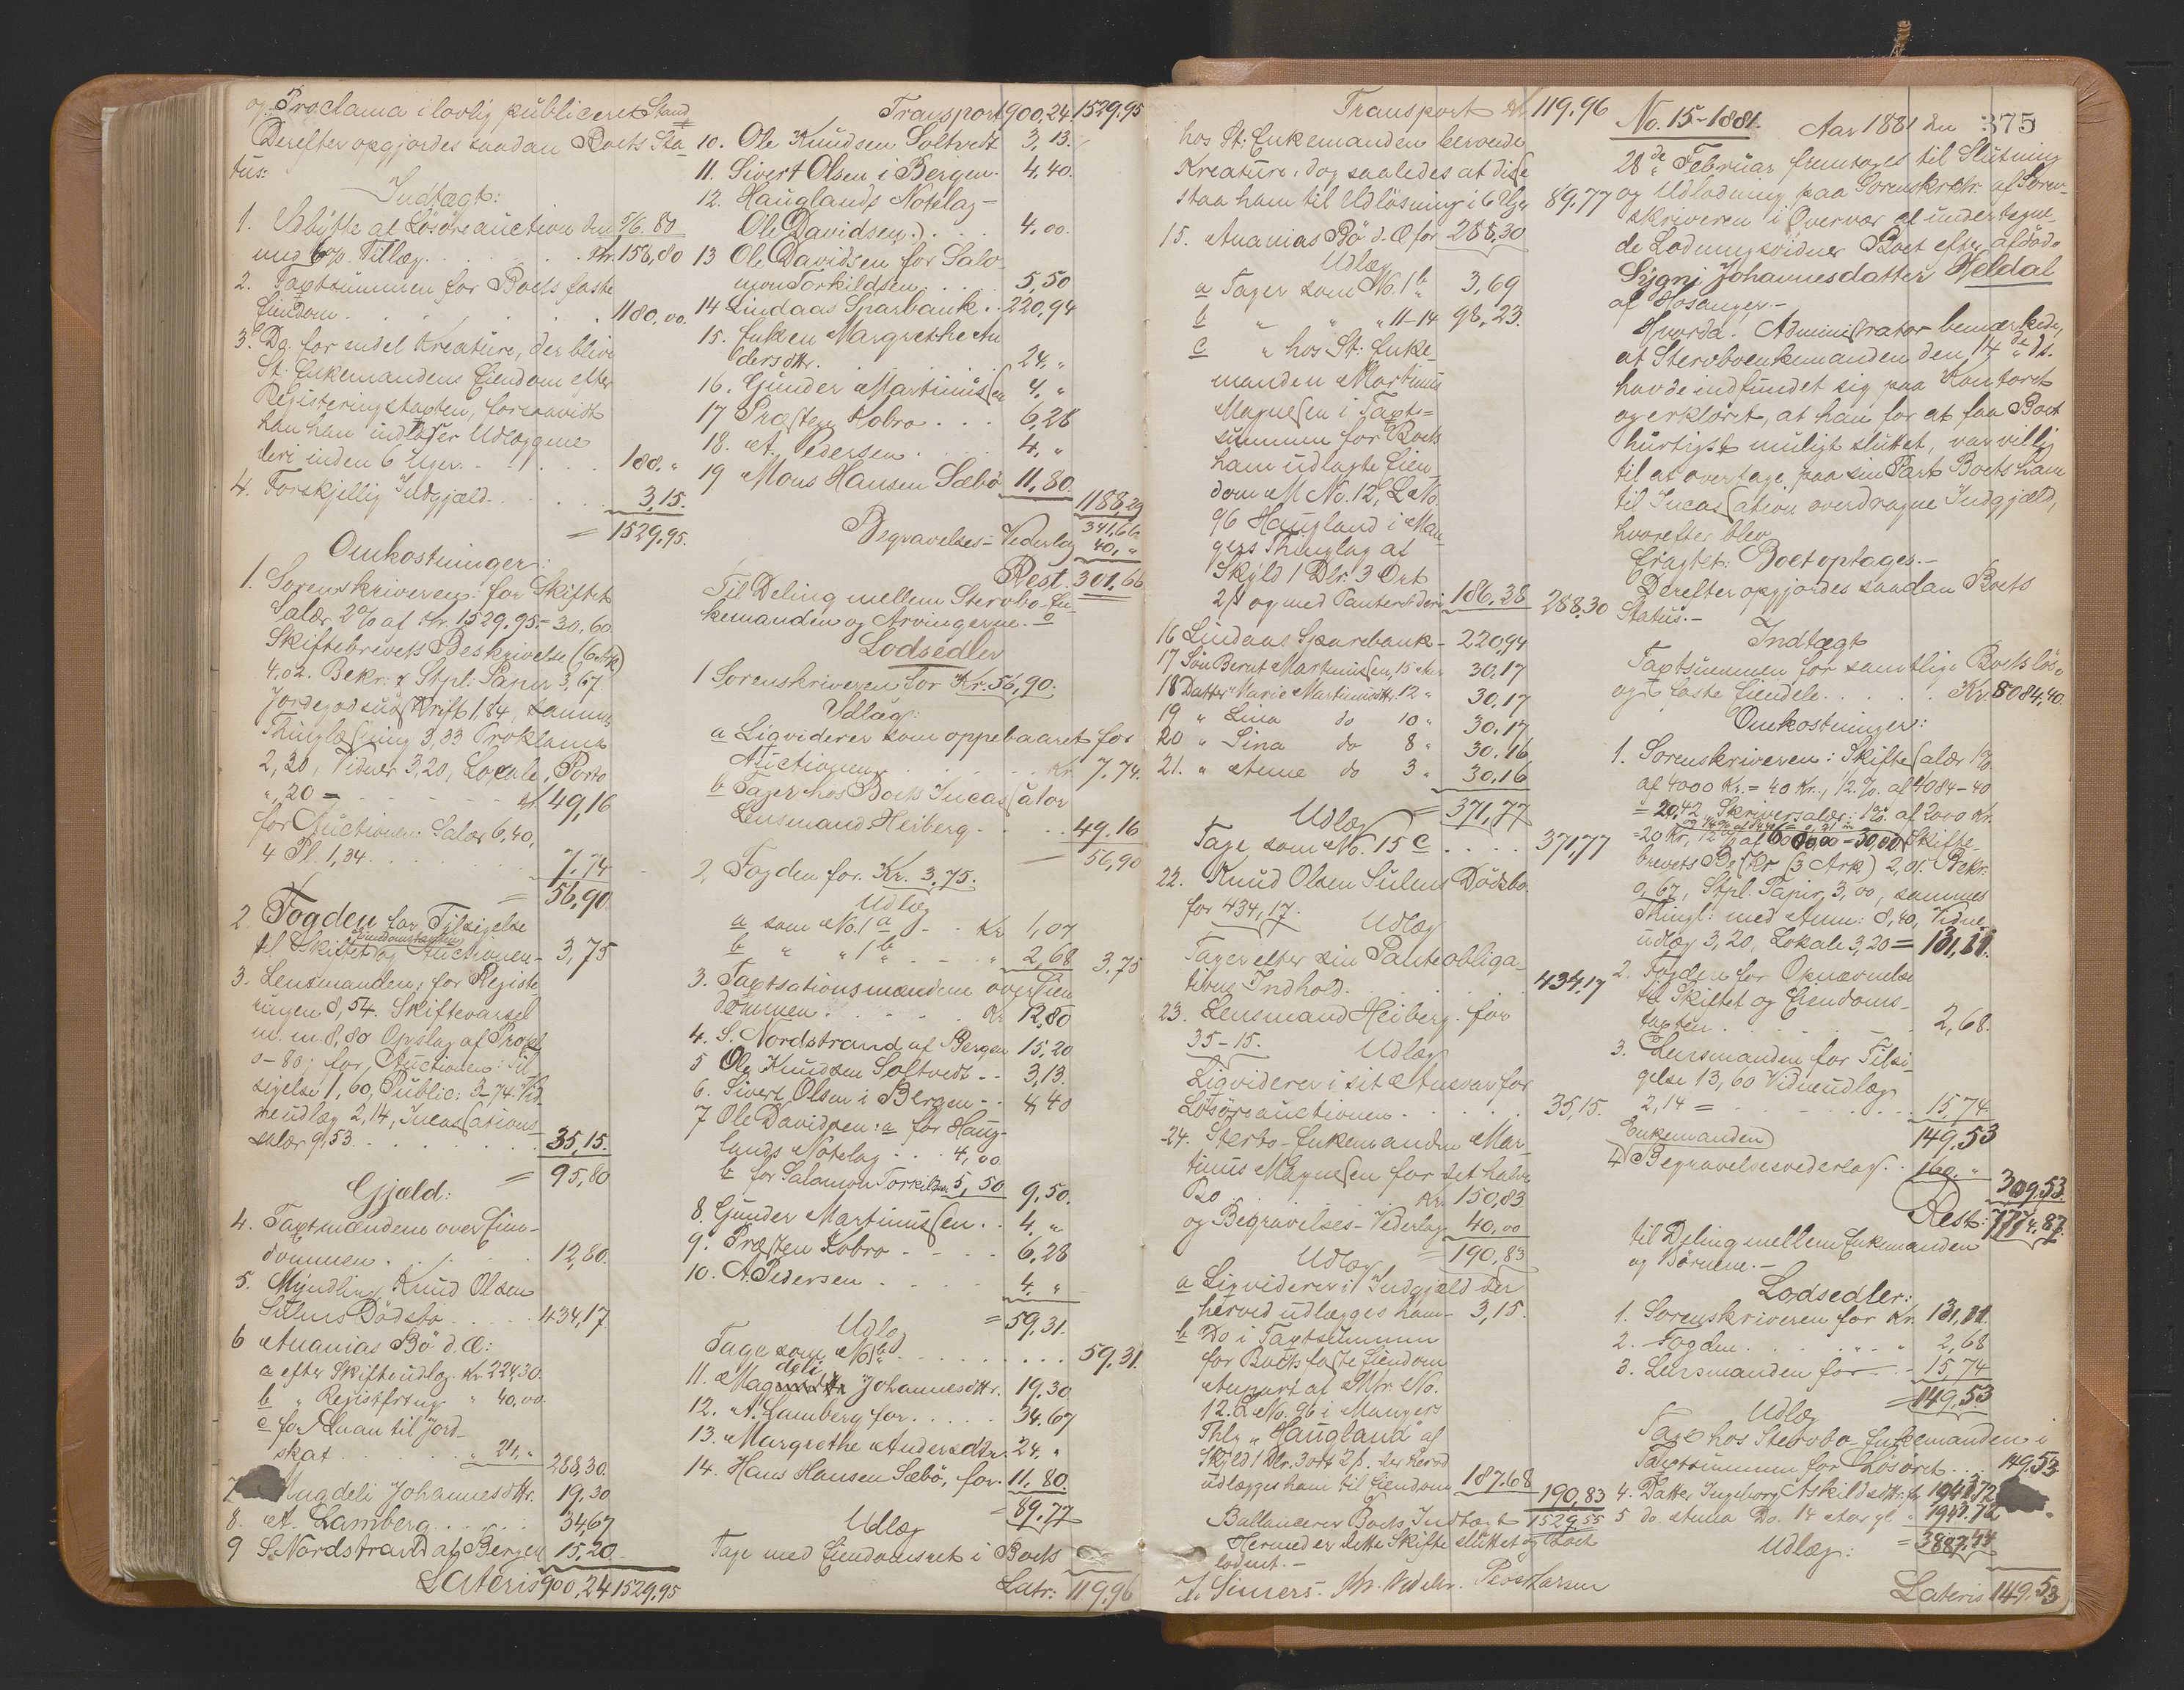 og Proclama i lovlig publiceret Stand
Derefter opgjordes saadan Boets Sta-
tus:
Indtægt:
1. Udbytte af Løsøreauction den 5/6. 80
med 6% Tillæg . . . Kr. 158,80
2. Taxtsummen for Boets faste
Eiendom . . . 1180,00.
3. Do. for endel Kreature, der blive
St: Enkemandens Eiendom efter
Registeringstaxten, forsaavidt
han han indløser Udlæggene
deri inden 6 Uger. . . 188. "
4. Forskjellig Indgjæld . . . 3,15.
= 1529,95.
Omkostninger:
1. Sorenskriveren: for Skiftet
Salær 2% af Kr. 1529,95 = 30,60
Skiftebrevets Beskrivelse (6 Ark)
4,02. Bekr: & Stpl. Papir 3,67.
Jordegodsudskrift 1,84, sammes
Thinglæsning 3,33 Proklama
2,30, Vidner 3,20, Locale, Porto
",20 = . . . Kr. 49,16
for Auctionen: Salær 6,40,
4 Pl. 1,34. . . 7,74
= 56,90
2. Fogden for Tilsigelse
Eiendomstaxten
til Skiftet og Auctionen - 3,75
3. Lensmanden; for Registe
ringen 8,54. Skiftevarsel
m. m. 8,80 Opslag af Prokl
0-80; for Auctionen: Til-
sigelse 1,60, Public: 3-74. Vid-
neudlæg 2,14, Incassations-
salær 9,53. . . 35,15.
= 95,80
Gjæld:
4. Taxtmændene over Eien-
dommen . . . 12,80.
5. Myndling Knud Olsen
Sulens Dødsbo . . . 434,17.
6 Ananias Bö d. Æ:
a efter Skifteudlæg. Kr. 224,30.
b " Registfrtng. " 40,00.
c for Laan til Jord-
skat . . . " 24, " 288,30.
7. Magdeli Johannesdttr. 19,30
8. A. Lamberg . . . 34,67
9 S. Nordstrand af Bergen 15,20
Lateris 900,24 1529,95
Transport 900,24. 1529,95
10. Ole Knudsen Soltvedt 3,13.
11. Sivert Olsen i Bergen. 4,40.
12. Hauglands Notelag -
Ole Davidsen . . . 4,00.
13 Ole Davidsen for Salo-
mon Torkildsen . . . 5,50
14 Lindaas Sparbank . . 220,94
15. Enken Margrethe An
dersdttr. . . 24, "
16. Gunder Martinussen 4, "
17 Præsten Kobro . . . 6,28
18. A. Pedersen . . . 4, "
19 Mons Hansen Sæbö 11,80.
1188,29
341,66
Begravelses-Vederlag 40, "
Rest. 301,66
Til Deling mellem Stervbo-En-
kemanden og Arvingerne.
Lodsedler
1 Sorenskriveren for Kr. 56,90:
Udlæg:
a Ligviderer som oppebaaret for
Auctionen . . . Kr 7,74.
b Tager hos Boets Incassator
Lensmand Heiberg . . . 49,16
56,90
2. Fogden for Kr. 3,75:
Udlæg
a som No. 1 a . . Kr 1,07
b " " 1 b . . " 2,68 3,75
3. Taxtsationsmændene over Eien
dommen . . . Kr 12,80
4. S. Nordstrand af Bergen 15,20
5 Ole Knudsen Soltvedt . . 3,13.
6. Sivert Olsen i Bergen . . 4,40
7 Ole Davidsen: a for Haug-
lands Notelag . . . 4,00
b for Salomon Torkildsen 5,50 9,50.
8. Gunder Martinussen . . 4. "
9. Præsten Kobro . . . 6,28
10. A. Pedersen . . . 4, "
= 59,31.
Udlæg
Tage som No 1 b . . . 59,31.
deli
11. Mag Johannesdttr. 19,30
12. A. Lamberg for . . . 34,67
13. Margrethe Andersdttr. 24, "
14. Hans Hansen Sæbö, for. 11,80.
= 89,77
Udlæg
Tage med Eiendomsret i Boets
Latr: 119,96
Transport Kr 119,96
hos St: Enkemanden beroende
Kreature, dog saaledes at disse
staa ham til Udløsning i 6 Uger 89,77
15. Ananias Bö d. Æ for 288,30
Udlæg
a Tager som No. 1 b 3,69
b " " " 11-14 98,23.
c " hos St: Enke-
manden Martinus
Magnesen i Taxt-
summen for Boets
ham udlagte Eien-
dom M No. 12, L No.
96 Haugland i Man-
gers Thinglag af
Skyld 1 Dlr. 3 Ort
2 ß og med Panteret deri 186,38 288,30
16 Lindaas Sparebank - 220,94
17 Søn Bernt Martinussen, 15 Aar 30,17
18 Datter Marie Martinusdttr. 12 " 30,17
19 " Lina do 10 " 30,17
20 " Sina do 8 " 30,16
21. " Anne do 3 " 30,16
= 371,77
Udlæg
Tage som No. 15 c . . . 371,77
22. Knud Olsen Sulens Dødsbo
for 434,17.
Udlæg
Tager efter sin Panteobliga-
tions Indhold . . . 434,17
23. Lensmand Heiberg. for
35-15. Udlæg
Ligviderer i sit Ansvar for
Løsøreauctionen . . . 35,15.
24. Stervbo-Enkemanden Mar-
tinus Magnesen for det halve
Bo . . . Kr. 150,83
og Begravelses-Vederlag 40,00
= 190,83
Udlæg
a Ligviderer i Indgjæld der
herved udlægges ham - 3,15.
b Do i Taxtsummen
for Boets faste Eiendom
Anpart af Mtr. No.
12. L No. 96 i Mangers
Thlg. "Haugland" af
Skyld 1 Dlr. 3 ort 2 ß. der herved
udlægges ham til Eiendom 187,68 190,83
Ballancerer Boets Indtægt 1529,55
Hermed er dette Skifte sluttet og Boet
lodnet. -
No. 15-1881. Aar 1881 den 375
28de Februar foretoges til Slutning
og Udlodning paa Sorenskrktr. af Soren-
skriveren i Overvær af undertegne-
de Lodningsvidner Boet efter afdøde
Sygni Johannesdatter Heldal
af Hosanger. -
Hvorda. Administrator bemærkede,
at Stervboenkemanden den 14de ds.
havde indfundet sig paa Kontoret
og erklæret, at han for at faa Boet
hurtigst muligt sluttet, var villig
til at overtage paa sin Part Boets ham
til Incassation overdragne Indgjæld,
hvorefter blev
Eragtet: Boet optages. -
Derefter opgjordes saadan Boets
Status. -
Indtægt
Taxtsummen for samtlige Boets løse
og faste Eiendele . . . Kr. 8084,40.
Omkostninger:
1. Sorenskriveren: Skiftesalær 1%
af 4000 Kr. = 40 Kr., 1/2 % af 4084-40
= 20,42 Skriversalær: 1% af 2000 Kr.
= 20 Kr, 1/2 % af 6000,00 = 30,00 Skifte-
brevets Beskr (3 Ark) 2,01. Bekr:
0,67, Stpl. Papir 3,00, sammes
Thingl: med Anm: 8,40, Vidne-
udlæg 3,20, Lokale 3,20 = 131,11.
2. Fogden for Opnævnelse
til Skiftet og Eiendoms-
taxten . . . 2,68.
3. Lensmanden for Tilsi-
gelse 13,60 Vidneudlæg
2,14 = . . . 15,74.
149,53
Enkemanden
4 Begravelsesvederlag . . 160. "
309,53.
Rest: 7774,87.
til Deling mellem Enkemanden
og Børnene. -
Lodsedler:
1. Sorenskriveren for Kr. 131,11.
2. Fogden . . . " " 2,68
3. Lensmanden for - - 15,74
= 149,53
Udlæg
Tage hos Stervbo-Enkemanden i
Taxtsummen for Løsøret . . 149,53.
4. Datter Ingeborg Askildsdttr. for 1943,72
5 do. Anna Do. 14 Aar gl. " 1943,72
= 3887,44
Udlæg:
Lateris 149,53